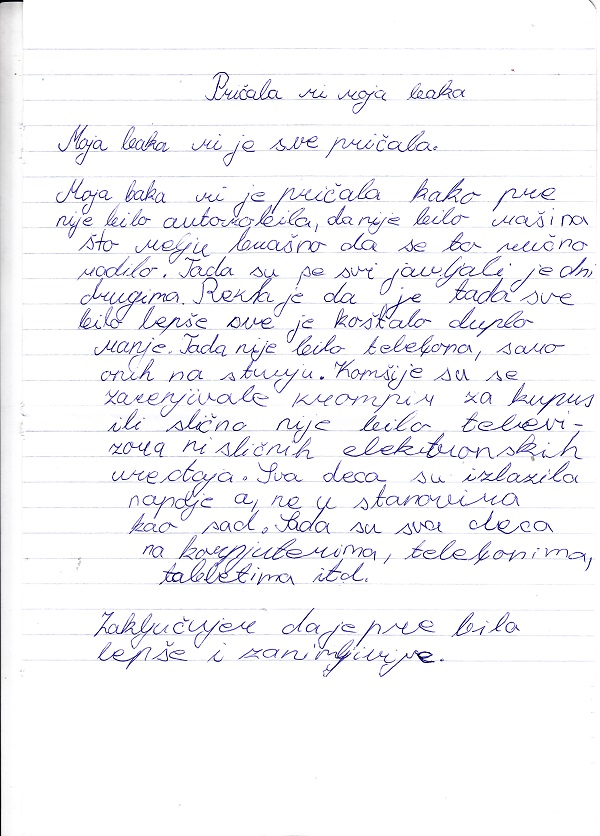 Pričala mi moja baka
Moja baka mi je sve pričala.
Moja baka mi je pričala kako pre
nije bilo automobila, da nije bilo mašina
što melju brašno da se to ručno
radilo. Tada su se svi javljali jedni
drugima. Rekla je da je tada sve
bilo lepše sve je koštalo duplo
manje. Tada nije bilo telefona, samo
onih na struju. Komšije su se
zamenjivale krompir za kupus
ili slično nije bilo televi-
zora ni sličnih elektronskih
uređaja. Sva deca su izlazila
napolje a, ne u stanovima
kao sad. Sada su sva deca
na kompjuterima, telefonima,
tabletima itd.
Zaključujem da je pre bilo
lepše i zanimljivije.